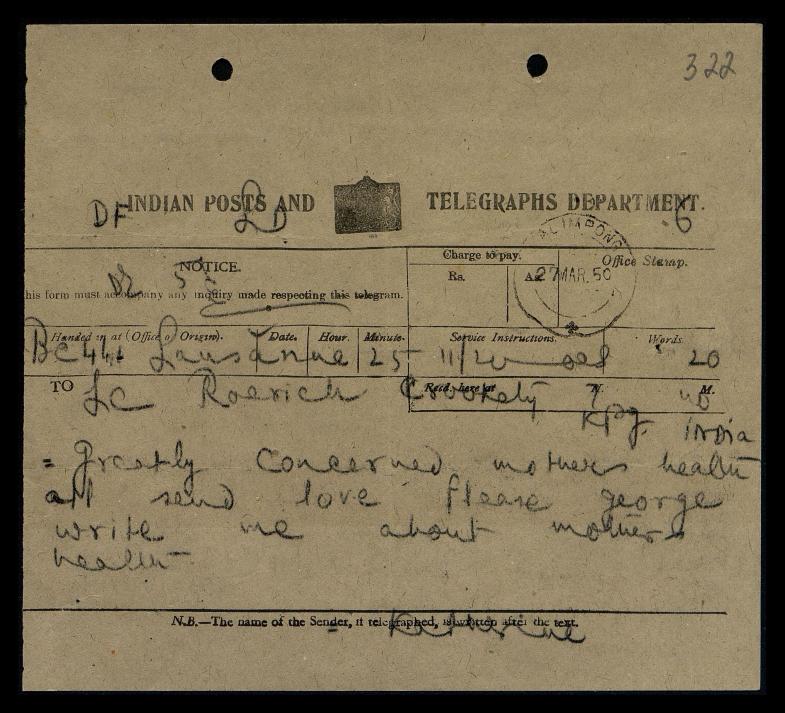 322
INDIAN POSTS AND TELEGRAPHS DEPARTMENT.
DF LD 6
NOTICE. Charge to pay. Office Stamp.
Rs. As.
KALIMPONG
27 MAR. 50
This form must accompany any inquiry made respecting this telegram.
Handed in at (Office of Origin). Date. Hour. Minute. Service Instructions. Words.
Lausanne 25 11/20 20
TO Recd. here at H. M.
Roerich Crookety
KPg. India
= Greatly concerned mothers health
all send love please george
write me about mothers
health
N.B.—The name of the Sender, if telegraphed, is written after the text.
= Katherine